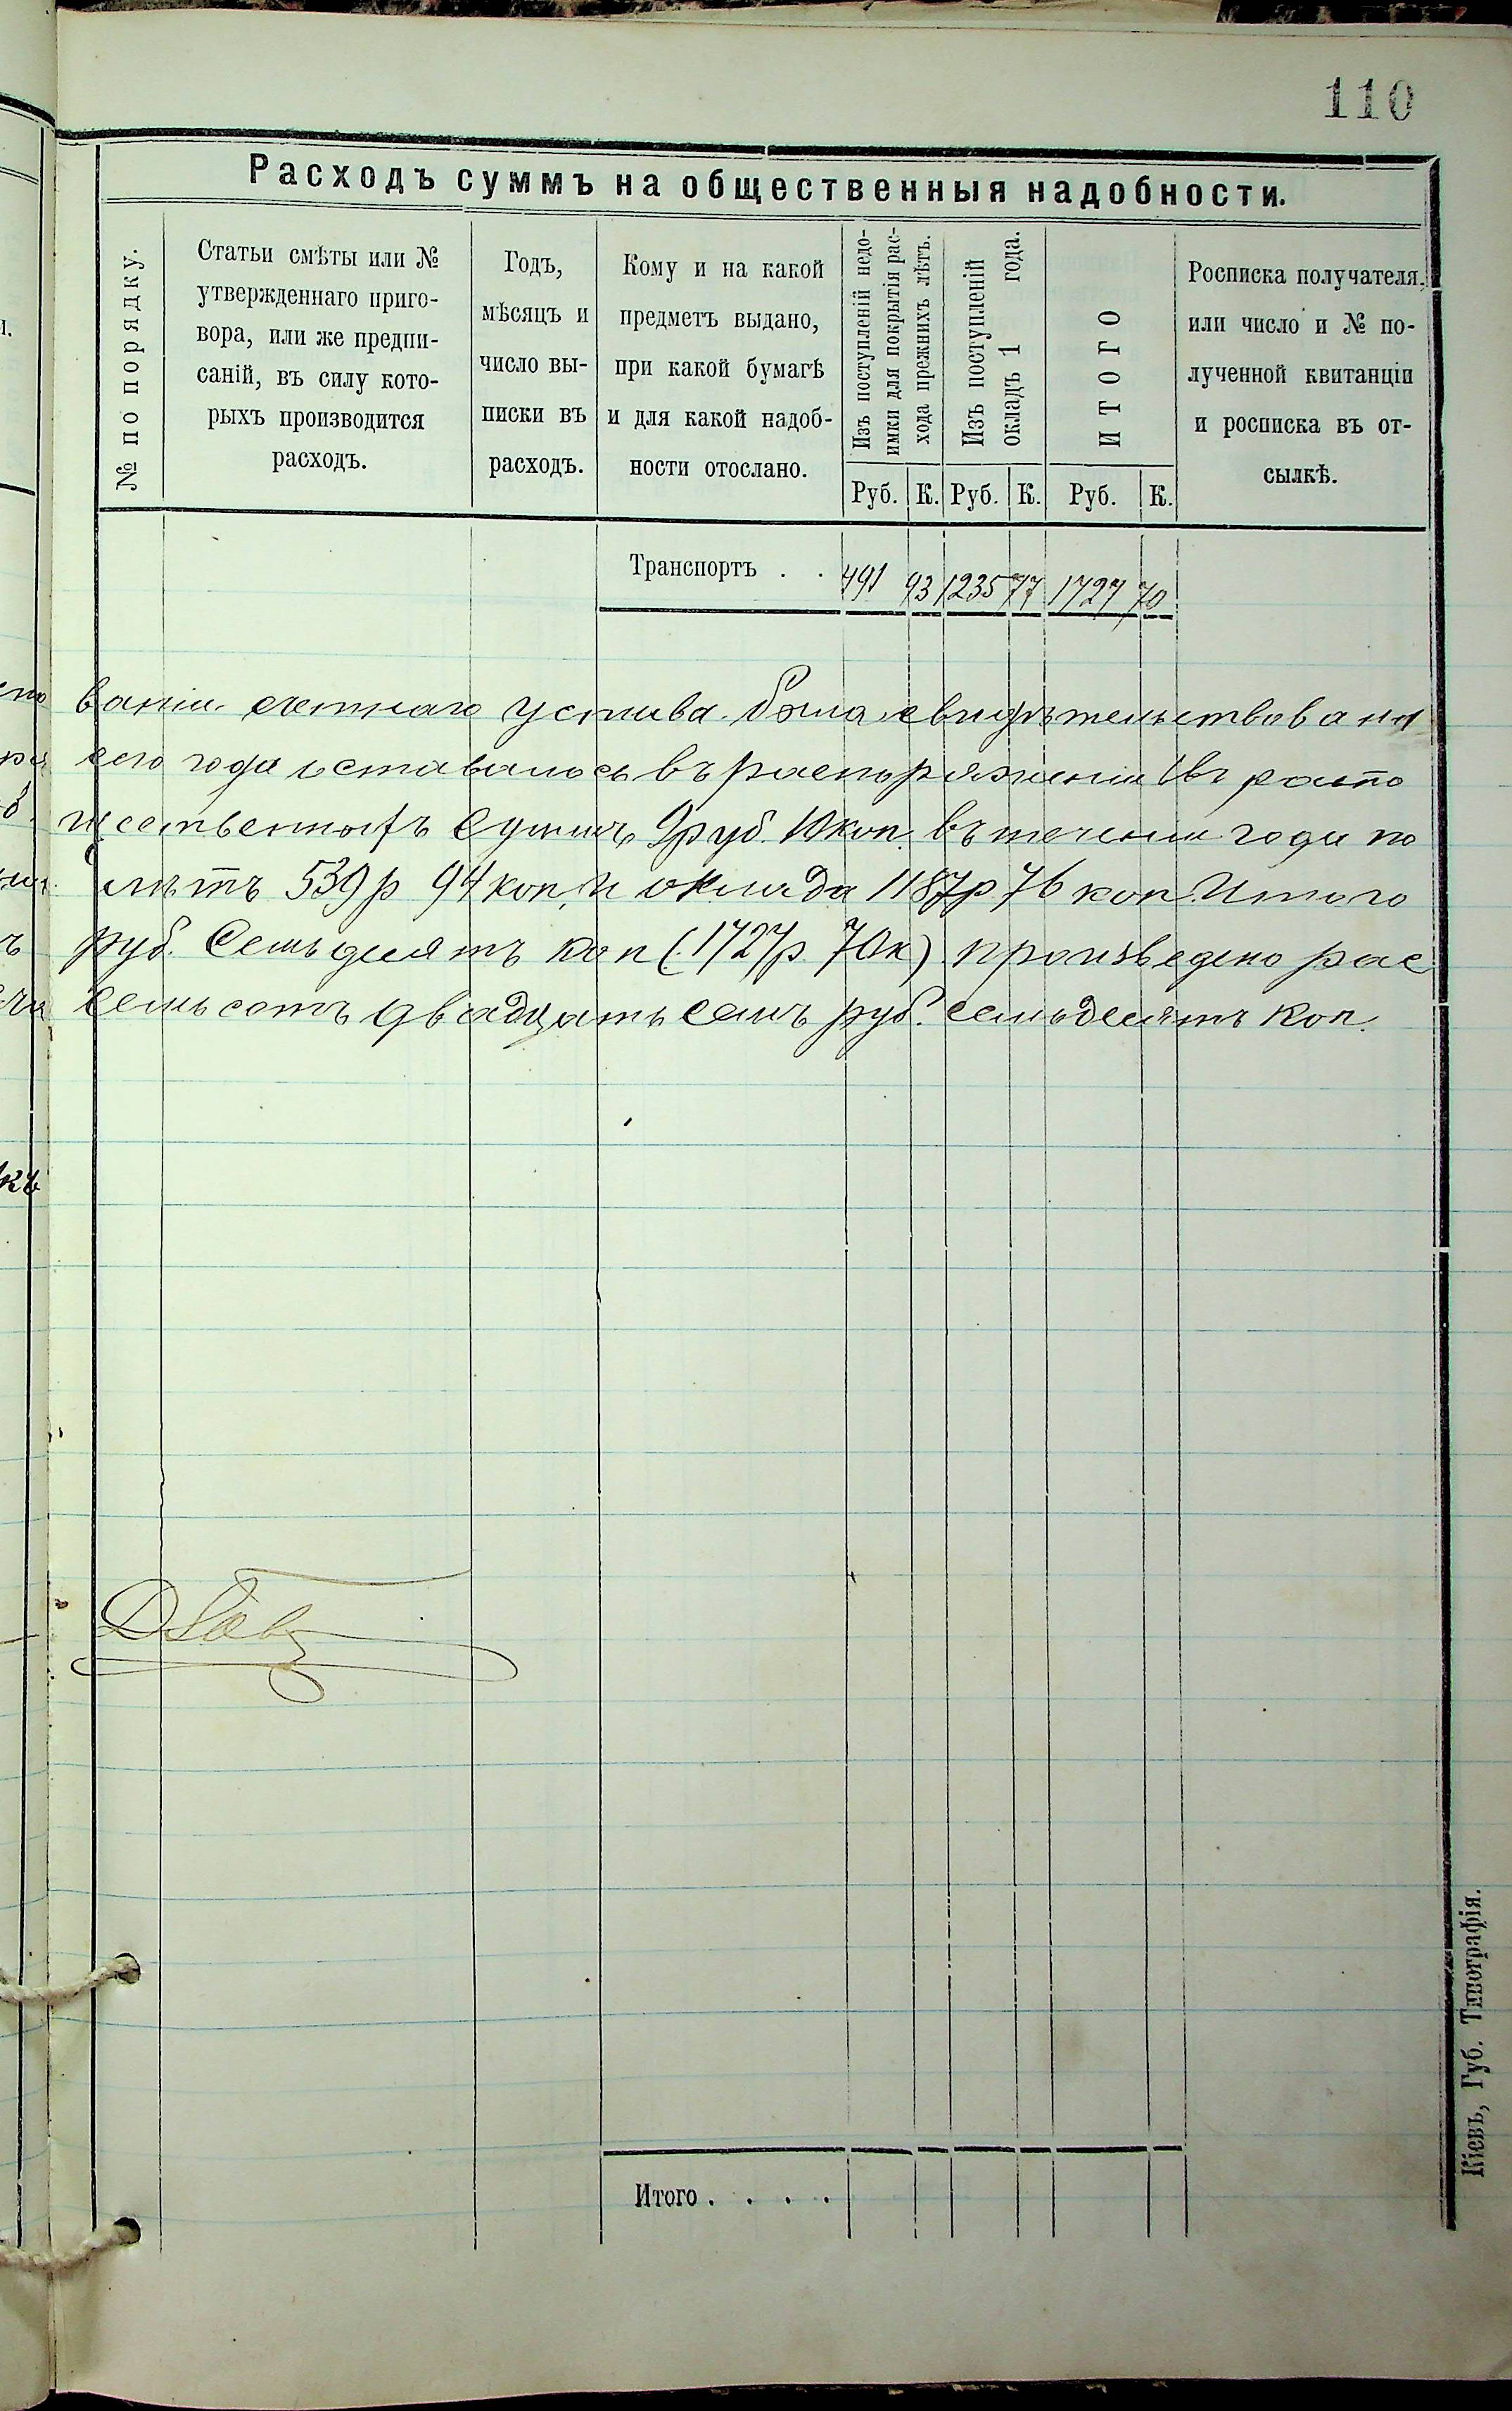 110
Расходъ суммъ на общественныя надобности.
№ по порядку.
Статьи смѣты или №
утвержденнаго приго-
вора, или же предпи-
саній, въ силу кото-
рыхъ производится
расходъ.
Годъ,
мѣсяцъ и
число вы-
писки въ
расходъ.
Кому и на какой
предметъ выдано,
при какой бумагѣ
и для какой надоб-
ности отослано.
Изъ поступленій недо-
имки для покрытія рас-
хода прежнихъ лѣтъ.
Изъ поступленій
окладъ 1 года.
ИТОГО
Росписка получателя,
или число и № по-
лученной квитанціи
и росписка въ от-
сылкѣ.
Руб. К. Руб. К. Руб. К.
Транспортъ . . 491 93 1235 77 1727 70
ваніи счетнаго устава была свидѣтельствована
сего года оставалось въ распоряженіи
щественныхъ суммъ 9 руб. 10 коп. въ теченіи года по
лѣтъ 539 р 94 коп, и оклада 1187 р 76 коп. Итого
руб. Семьдесятъ коп (1727 р. 70 к) произведено рас
семьсотъ двадцать семь руб. семьдесятъ коп.
Итого . . . .
Кіевъ, Губ. Типографія.